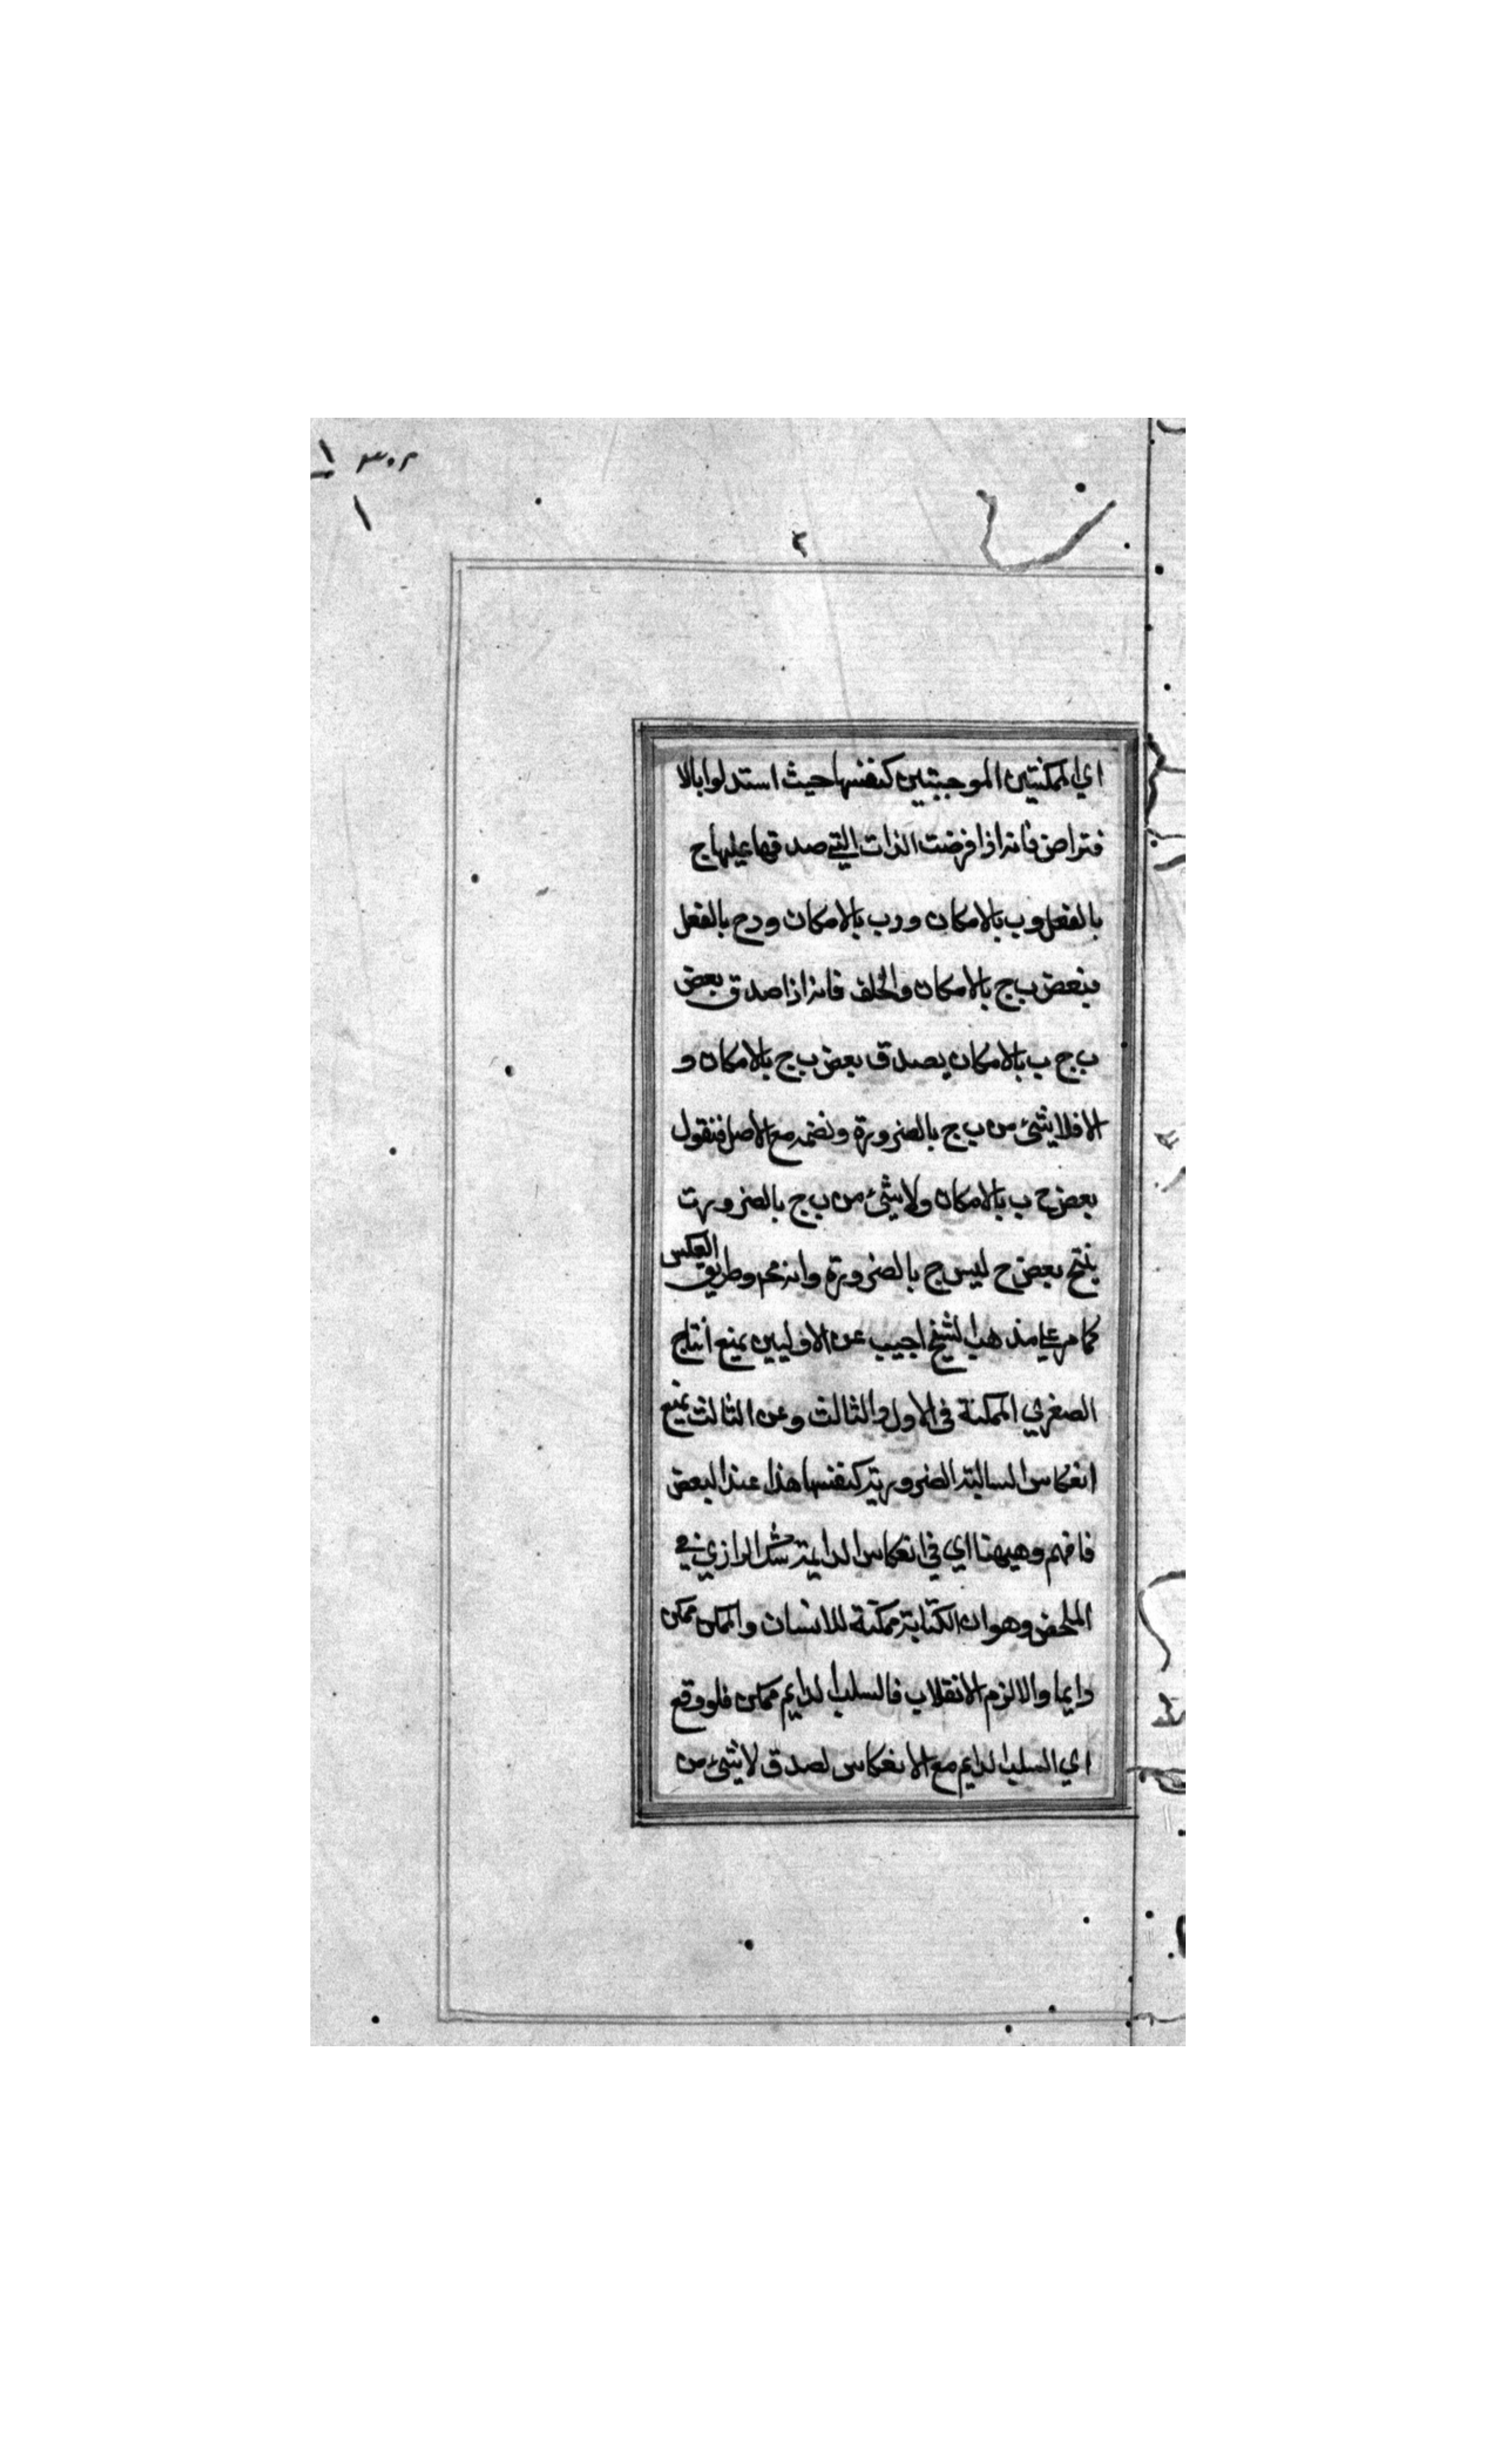 ٣٠٢
١
٢
اي الممكنتين الموجبتين كنفسها حيث استدلوا بالا
فتراض فانه اذا فرضت الذات التي صدقها عليها ج
بالفعل وب بالامكان ودب بالامكان ودج بالفعل
فبعض ب ج بالامكان والخلف فانه اذا صدق بعض
ب ج ب بالامكان يصدق بعض ب ج بالامكان و
الا فلا شئ من ب ج بالضرورة ونضمه مع الاصل فنقول
بعض ج ب بالامكان ولا شئ من ب ج بالضرورت
ينتج بعض ج ليس ج بالضرورة وانه مح وطريق العكس
كما مر علي مذهب الشيخ اجيب عن الاوليين بمنع انتاج
الصغري الممكنة في الاول والثالث وعن الثالث بمنع
انعكاس السالبة الضرورية كنفسها هذا عند البعض
فافهم وهيهنا اي في انعكاس الدايمة شك الرازي في
الملخص وهو ان الكتابة ممكنة للانسان والممكن ممكن
دايما والا لزم الانقلاب فالسلب الدايم ممكن فلو وقع
اي السلب الدايم مع الانعكاس لصدق لا شئ من